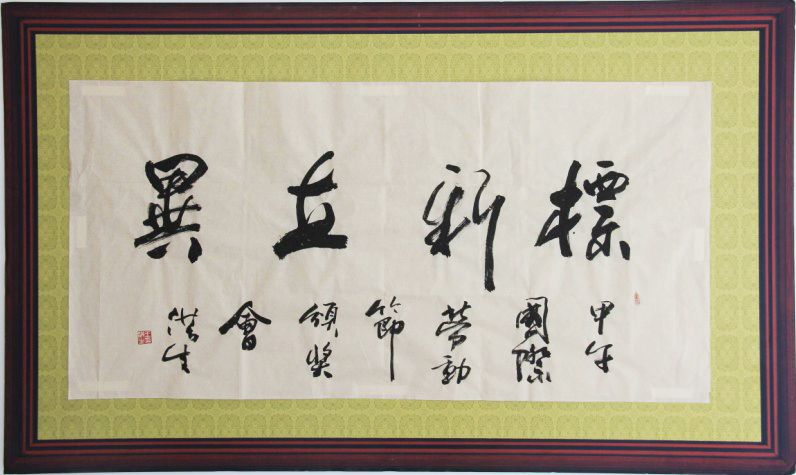 標新立異
甲午
國際
勞動
節
頒獎
會
洪生